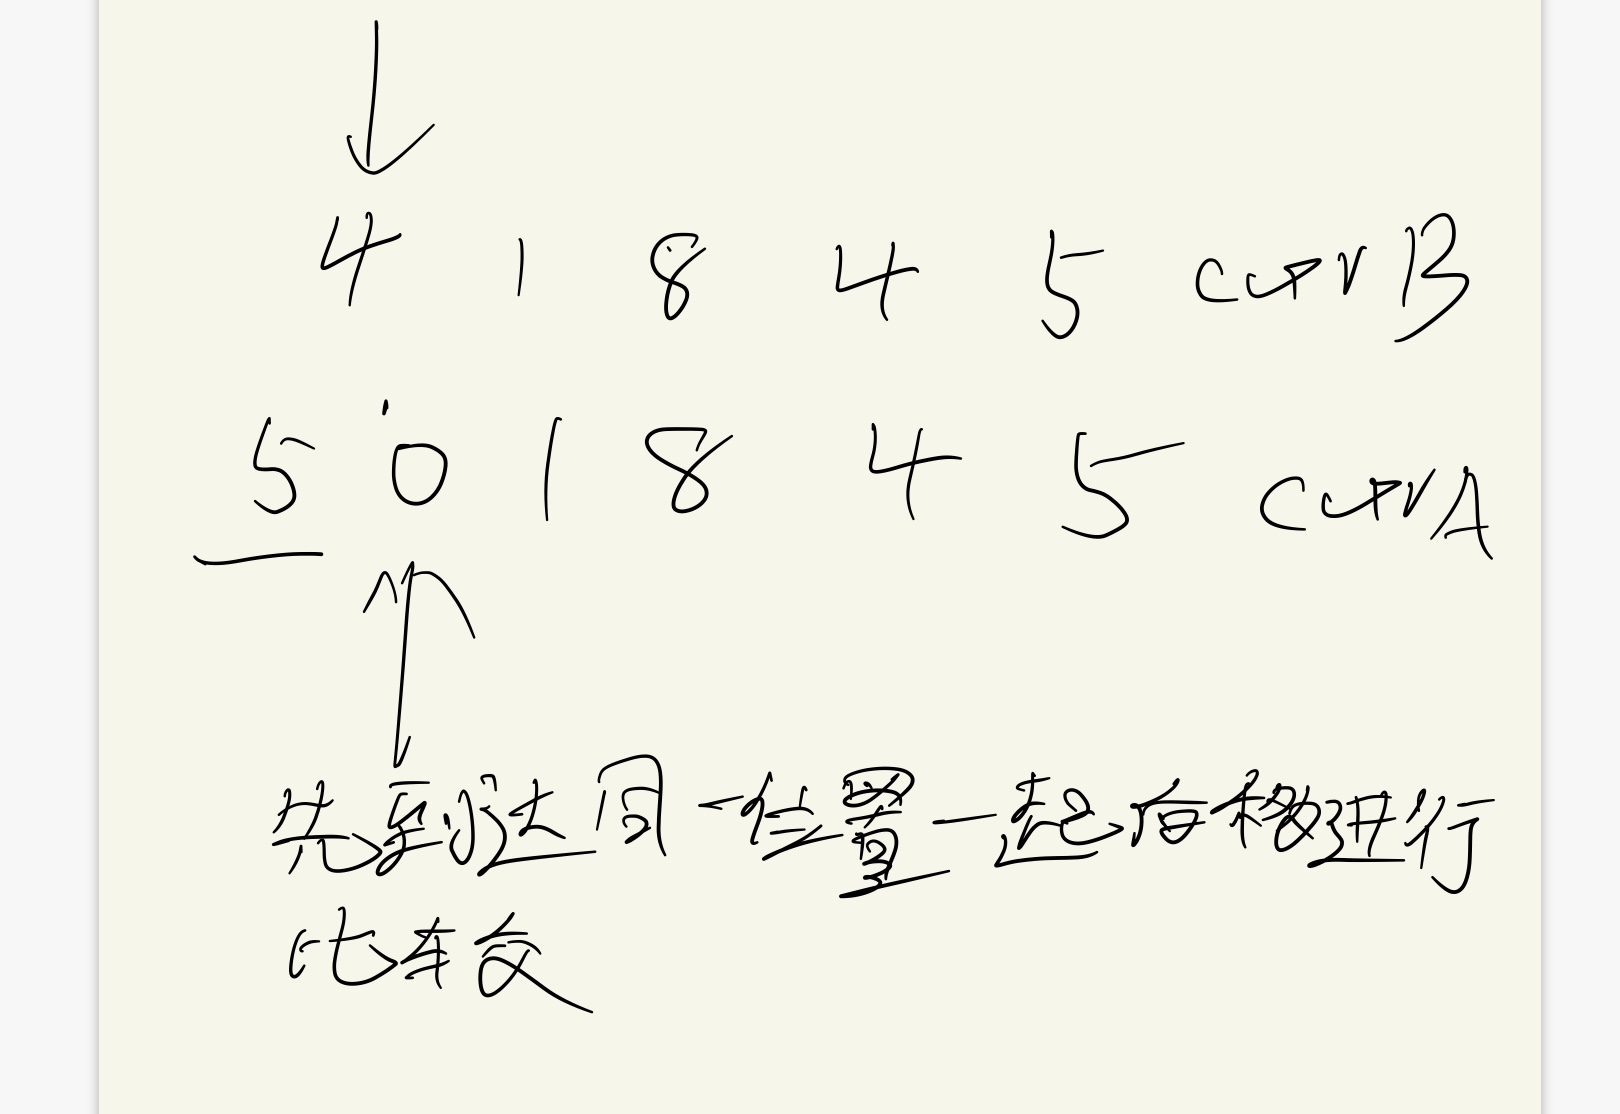 4 1 8 4 5 curB
5 0 1 8 4 5 curA
先到达同一位置一起后移进行
比较